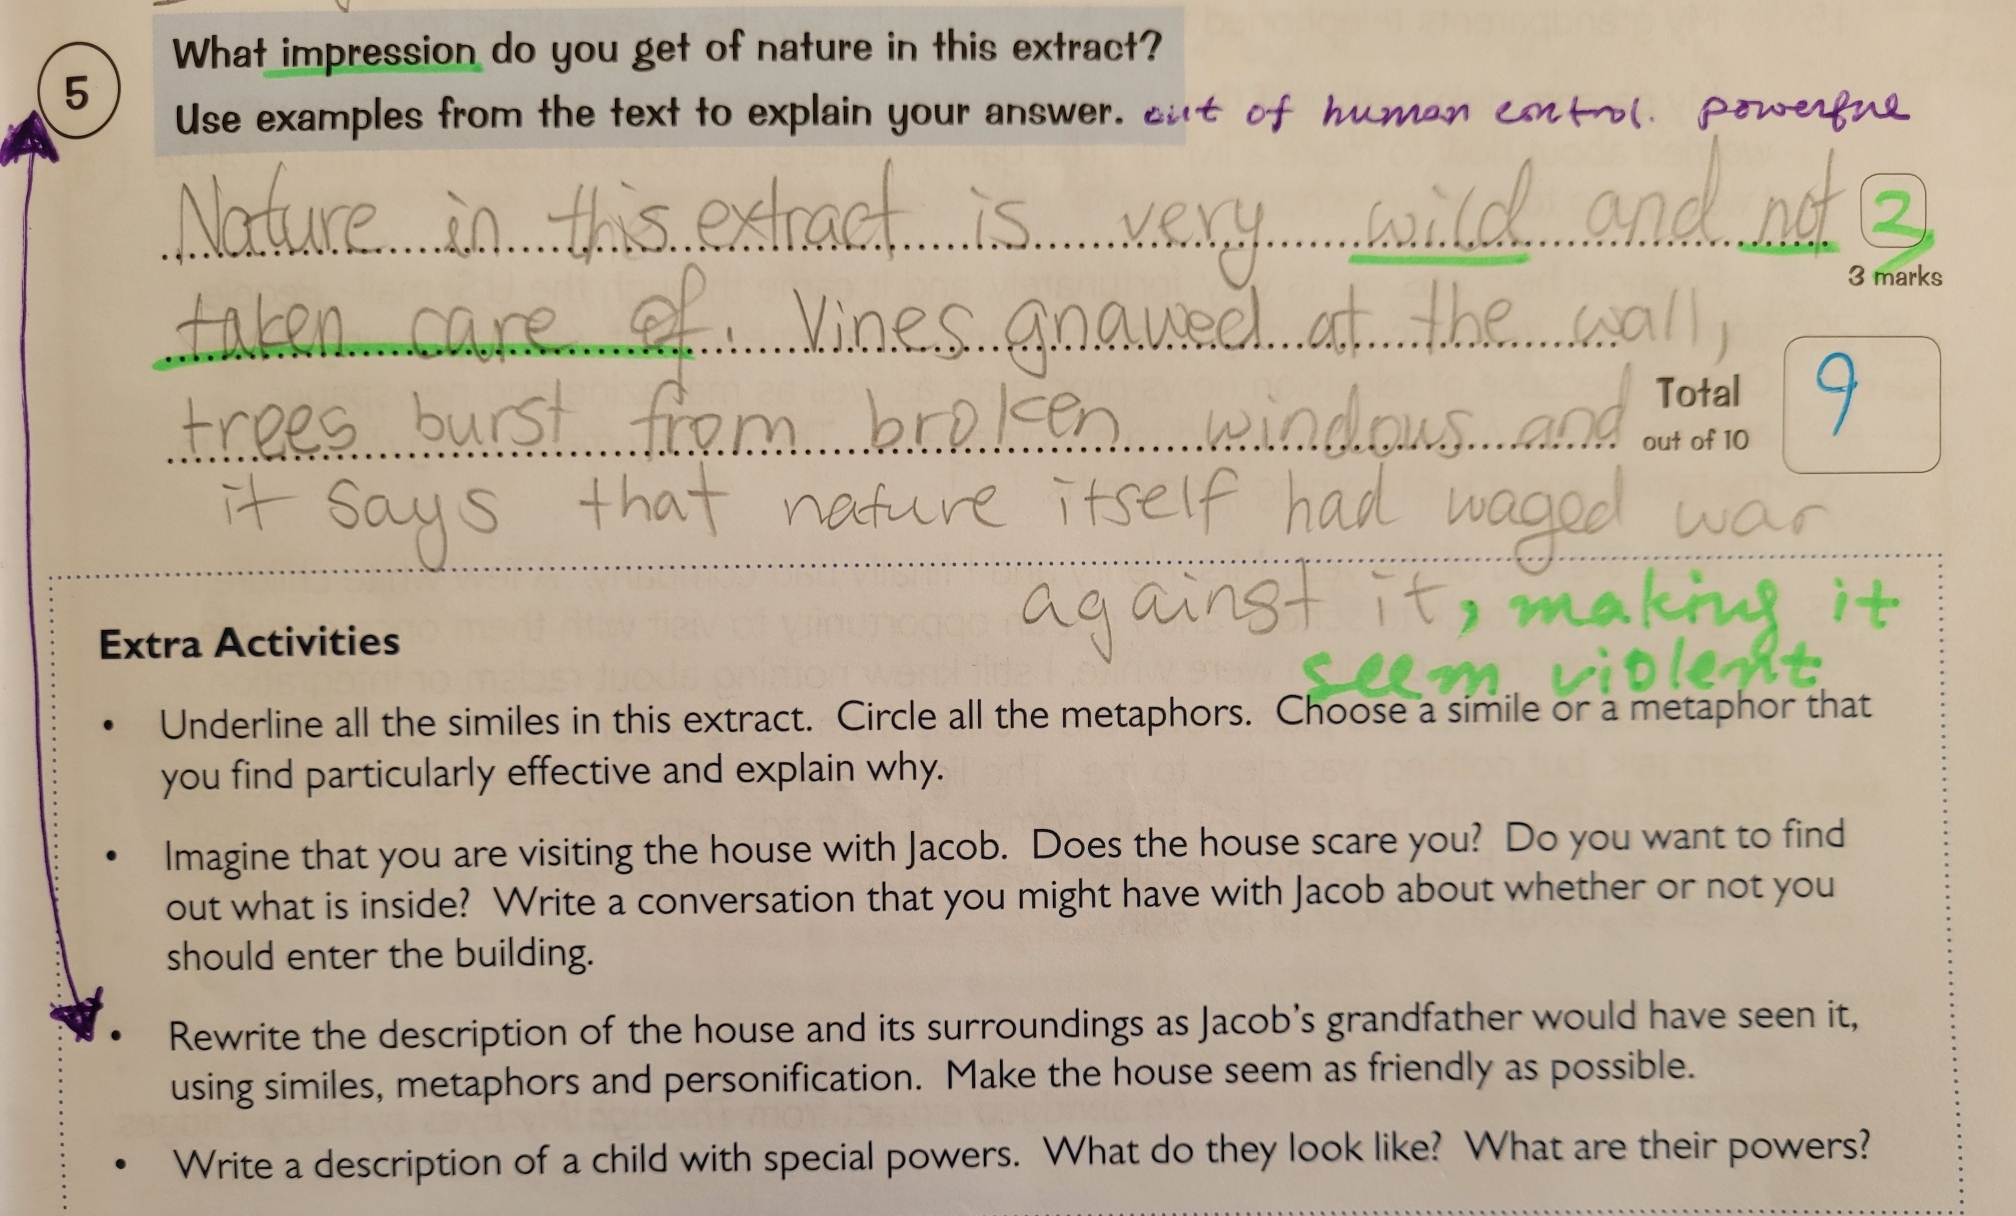 What impression do you get of nature in this extract?
5
Use examples from the text to explain your answer. out of human control. powerful
Nature in this extract is very wild and not
2
3 marks
taken care of. Vines gnawed at the wall,
trees burst from broken windows and
Total
out of 10
9
it says that nature itself had waged war
against it, making it
seem violent
Extra Activities
• Underline all the similes in this extract. Circle all the metaphors. Choose a simile or a metaphor that
you find particularly effective and explain why.
• Imagine that you are visiting the house with Jacob. Does the house scare you? Do you want to find
out what is inside? Write a conversation that you might have with Jacob about whether or not you
should enter the building.
• Rewrite the description of the house and its surroundings as Jacob's grandfather would have seen it,
using similes, metaphors and personification. Make the house seem as friendly as possible.
• Write a description of a child with special powers. What do they look like? What are their powers?